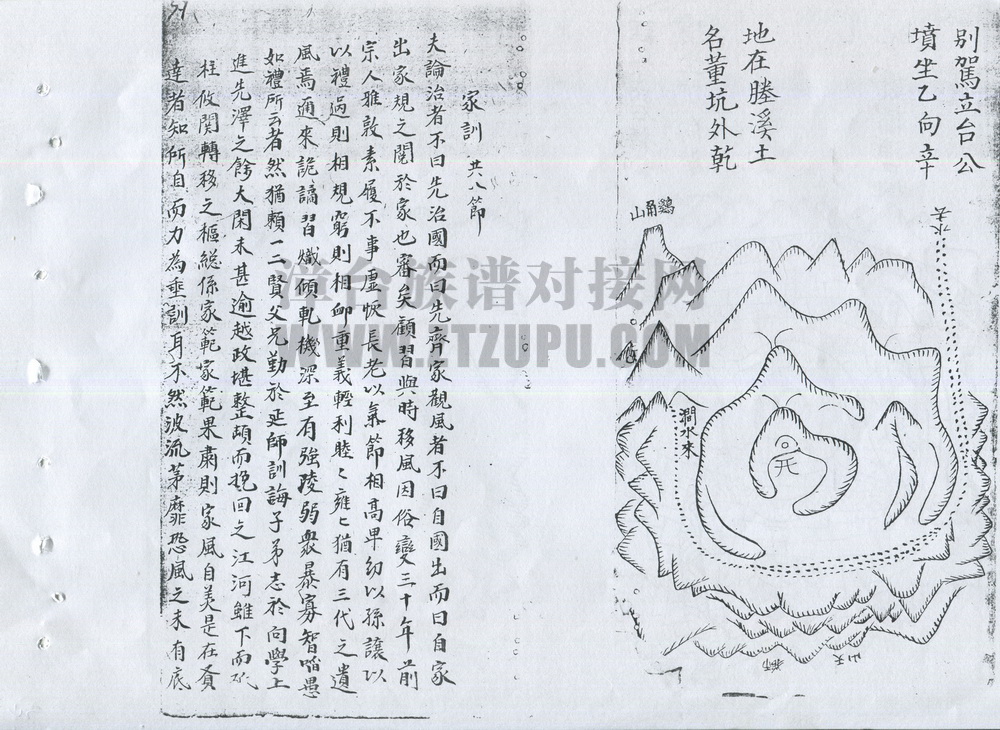 别駕立台公
墳坐乙向辛
地在塍溪土
名董坑外乾
水去
鷄角山
澗水來
天山
家訓 共八節
夫論治者不曰先治國而曰先齊家觀風者不曰自國出而曰自家
出家規之関於家也審矣顧習與時移風因俗變三十年前
宗人雅敦素履不事虛恢長老以氣節相高卑幼以孫讓以
以禮過則相規窮則相卹重義輕利睦〻雍〻猶有三代之遺
風焉適來詭譎習熾傾軋機深至有強陵弱衆暴寡智啗愚
如禮所云者然猶賴一二賢父兄勤於延師訓誨子弟志於向學上
進先澤之餘大閑未甚逾越政堪整頓而挽回之江河雖下而砥
柱攸関轉移之樞総係家範家範果肅則家風自美是在賢
達者知所自而力為垂訓耳不然波流茅靡恐風之未有底
漳台族谱对接网
WWW.ZTZUPU.COM